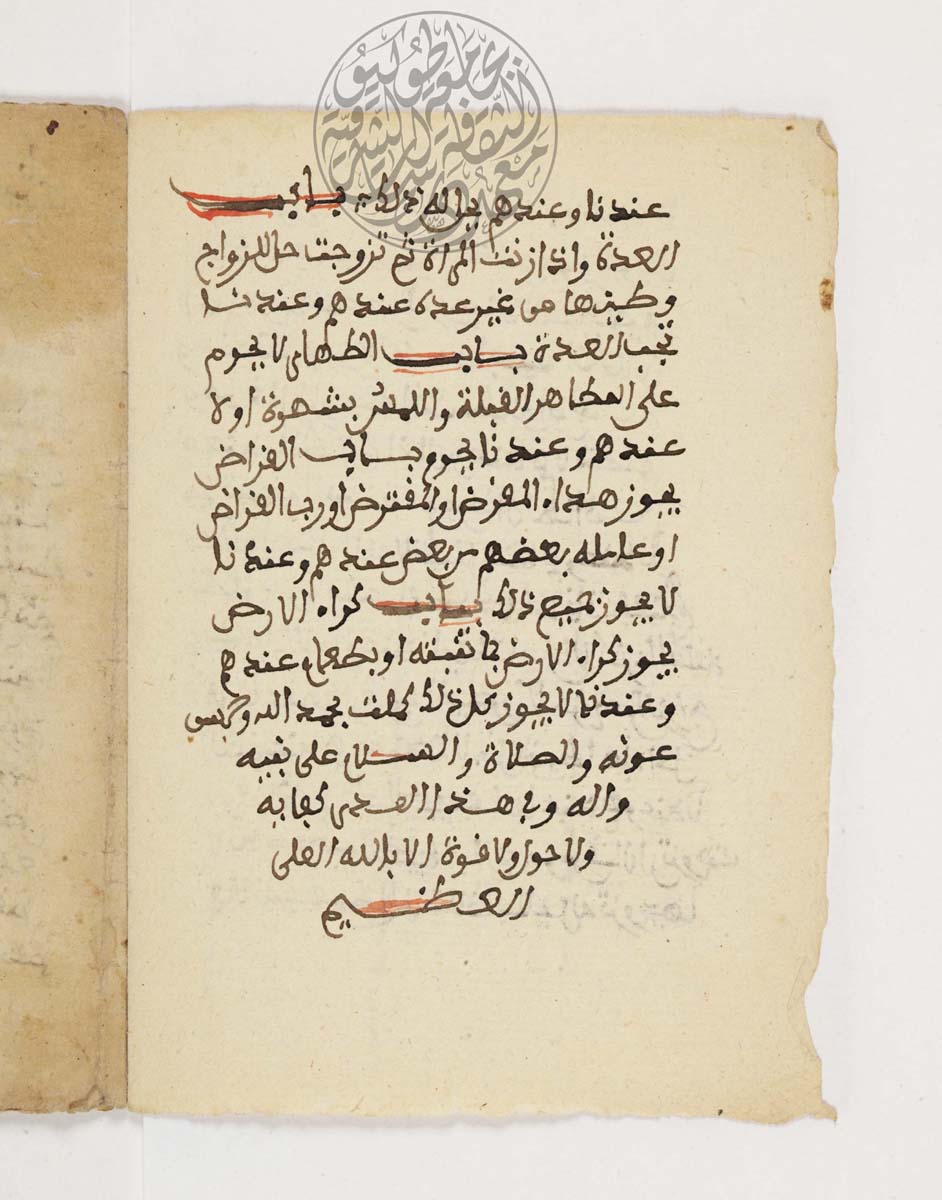 عندنا وعندهم يجوز له ذلك باب
العدة واذا زنت المراة ثم تزوجت حل للزواج
وطئها من غير عدة عندهم وعندنا
تجب العدة باب الظهار لا يحرم
على المظاهر القبلة واللمس بشهوة اولا
عندهم وعندنا يحرم باب القراض
يجوز هداء المقرض او المقترض او رب القراض
او عامله بعضهم من بعض عندهم وعندنا
لا يجوز جميع ذلك باب كراء الارض
يجوز كراء الارض بما تنبته او بطعام عندهم
وعندنا لا يجوز كل ذلك كملت بحمد الله وحسن
عونه والصلاة والسلام على نبيه
واله وفي هذا القدر كفاية
ولا حول ولا قوة الا بالله العلي
العظيم